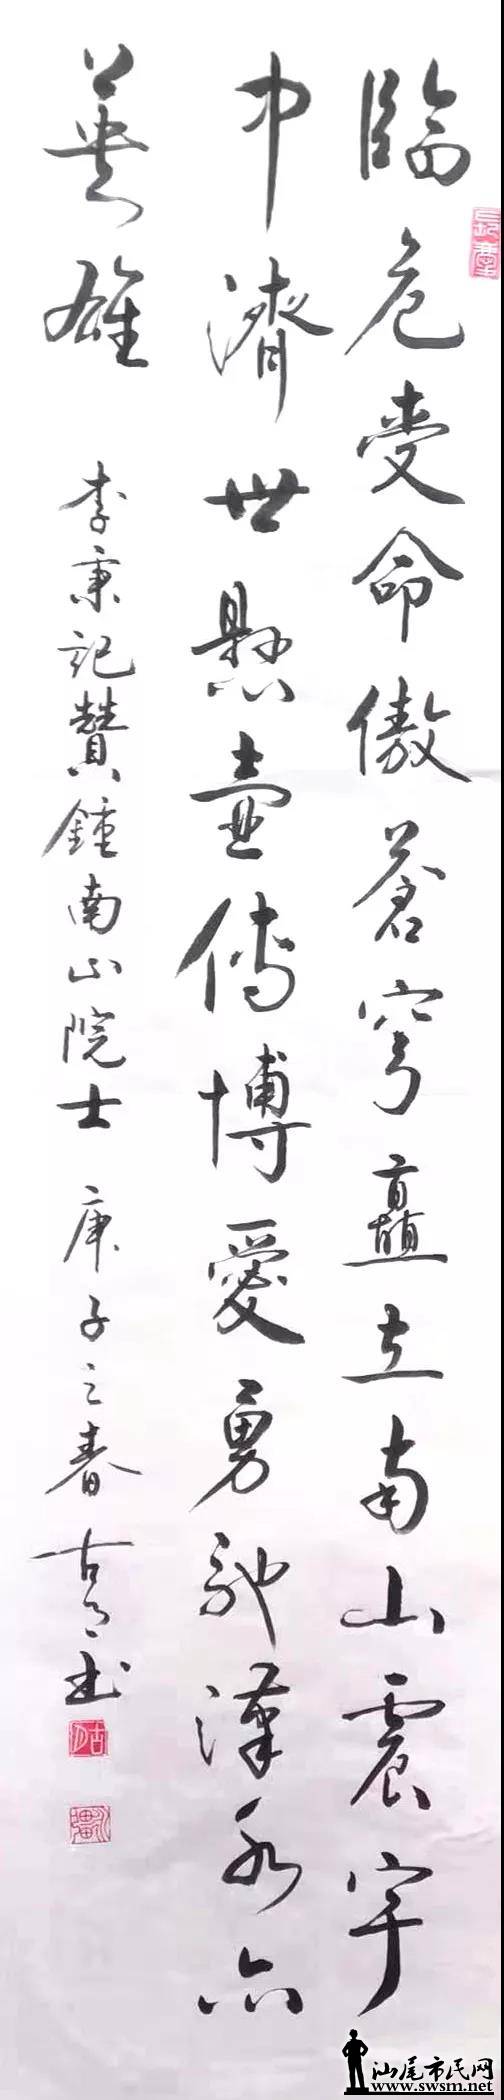 臨危受命傲蒼穹矗立南山震宇
中濟世懸壺傳博愛勇馳漢水亦
英雄 李秉記贊鍾南山院士 庚子之春 古書
汕尾市民网
www.swsm.net